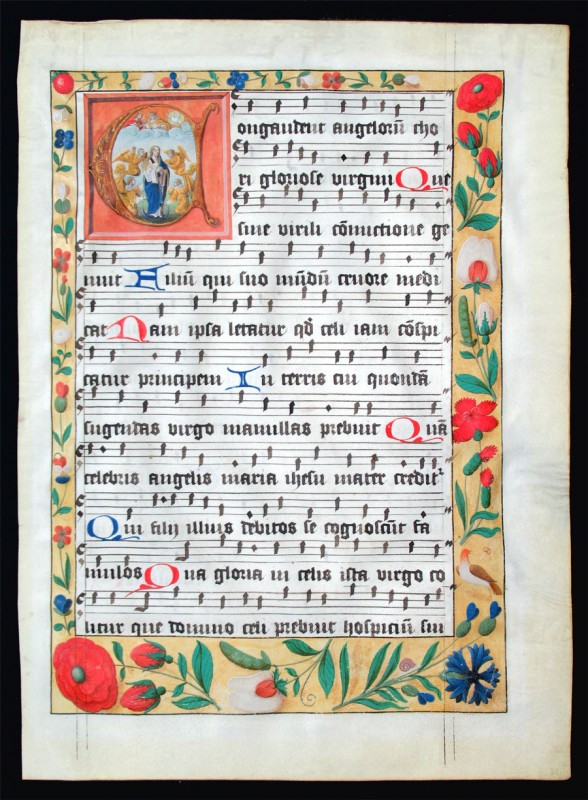 Congaudent angelorū cho
ri gloriose virgini Que
sine virili cōmixtione ge
nuit Filiū qui suo mūdū cruore medi
cat Nam ipsa letatur qď celi iam cōspi
catur principem In terris cui quondā
sugendas virgo mamillas prebuit Quā
celebris angelis maria ihesu mater credit᷑
Qui filij illius debitos se cognoscūt fa
mulos Qua gloria in celis ista virgo co
litur que domino celi prebuit hospiciū sui